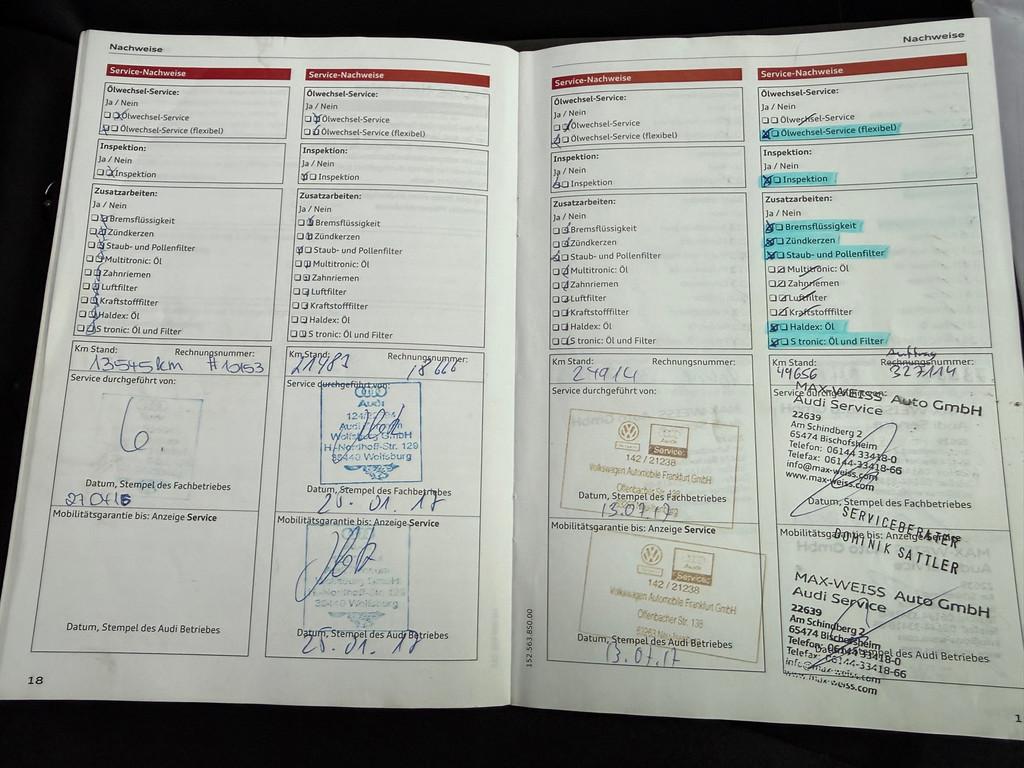 Nachweise
Service-Nachweise
Ölwechsel-Service:
Ja / Nein
Ölwechsel-Service
Ölwechsel-Service (flexibel)
Inspektion:
Ja / Nein
Inspektion
Zusatzarbeiten:
Ja / Nein
Bremsflüssigkeit
Zündkerzen
Staub- und Pollenfilter
Multitronic: Öl
Zahnriemen
Luftfilter
Kraftstofffilter
Haldex: Öl
S tronic: Öl und Filter
Km Stand: Rechnungsnummer:
13545km #10153
Service durchgeführt von:
Datum, Stempel des Fachbetriebes
Mobilitätsgarantie bis: Anzeige Service
Datum, Stempel des Audi Betriebes
18
Service-Nachweise
Ölwechsel-Service:
Ja / Nein
Ölwechsel-Service
Ölwechsel-Service (flexibel)
Inspektion:
Ja / Nein
Inspektion
Zusatzarbeiten:
Ja / Nein
Bremsflüssigkeit
Zündkerzen
Staub- und Pollenfilter
Multitronic: Öl
Zahnriemen
Luftfilter
Kraftstofffilter
Haldex: Öl
S tronic: Öl und Filter
Km Stand: Rechnungsnummer:
21483 18666
Service durchgeführt von:
Audi
Wolfsburg GmbH
H.-Nordhoff-Str. 129
38440 Wolfsburg
Datum, Stempel des Fachbetriebes
Mobilitätsgarantie bis: Anzeige Service
Wolfsburg GmbH
H.-Nordhoff-Str. 129
38440 Wolfsburg
Datum, Stempel des Audi Betriebes
152.563.8S0.00
Nachweise
Service-Nachweise
Ölwechsel-Service:
Ja / Nein
Ölwechsel-Service
Ölwechsel-Service (flexibel)
Inspektion:
Ja / Nein
Inspektion
Zusatzarbeiten:
Ja / Nein
Bremsflüssigkeit
Zündkerzen
Staub- und Pollenfilter
Multitronic: Öl
Zahnriemen
Luftfilter
Kraftstofffilter
Haldex: Öl
S tronic: Öl und Filter
Km Stand: Rechnungsnummer:
24914
Service durchgeführt von:
Audi
Service
142 / 21238
Volkswagen Automobile Frankfurt GmbH
Offenbacher Str. 138
Datum, Stempel des Fachbetriebes
13.07.17
Mobilitätsgarantie bis: Anzeige Service
Audi
Service
142 / 21238
Volkswagen Automobile Frankfurt GmbH
Offenbacher Str. 138
Datum, Stempel des Audi Betriebes
13.07.17
Service-Nachweise
Ölwechsel-Service:
Ja / Nein
Ölwechsel-Service
Ölwechsel-Service (flexibel)
Inspektion:
Ja / Nein
Inspektion
Zusatzarbeiten:
Ja / Nein
Bremsflüssigkeit
Zündkerzen
Staub- und Pollenfilter
Multitronic: Öl
Zahnriemen
Luftfilter
Kraftstofffilter
Haldex: Öl
S tronic: Öl und Filter
Auftrag
Km Stand: Rechnungsnummer:
49656 327114
Service durchgeführt von:
MAX-WEISS Auto GmbH
Audi Service
22639
Am Schindberg 2
65474 Bischofsheim
Telefon: 06144 33418-0
Telefax: 06144-33418-66
info@max-weiss.com
www.max-weiss.com
Datum, Stempel des Fachbetriebes
SERVICEBERATER
DOMINIK SATTLER
Mobilitätsgarantie bis: Anzeige Service
MAX-WEISS Auto GmbH
Audi Service
22639
Am Schindberg 2
65474 Bischofsheim
Telefon: 06144-33418-0
Telefax: 06144-33418-66
info@max-weiss.com
www.max-weiss.com
Datum, Stempel des Audi Betriebes